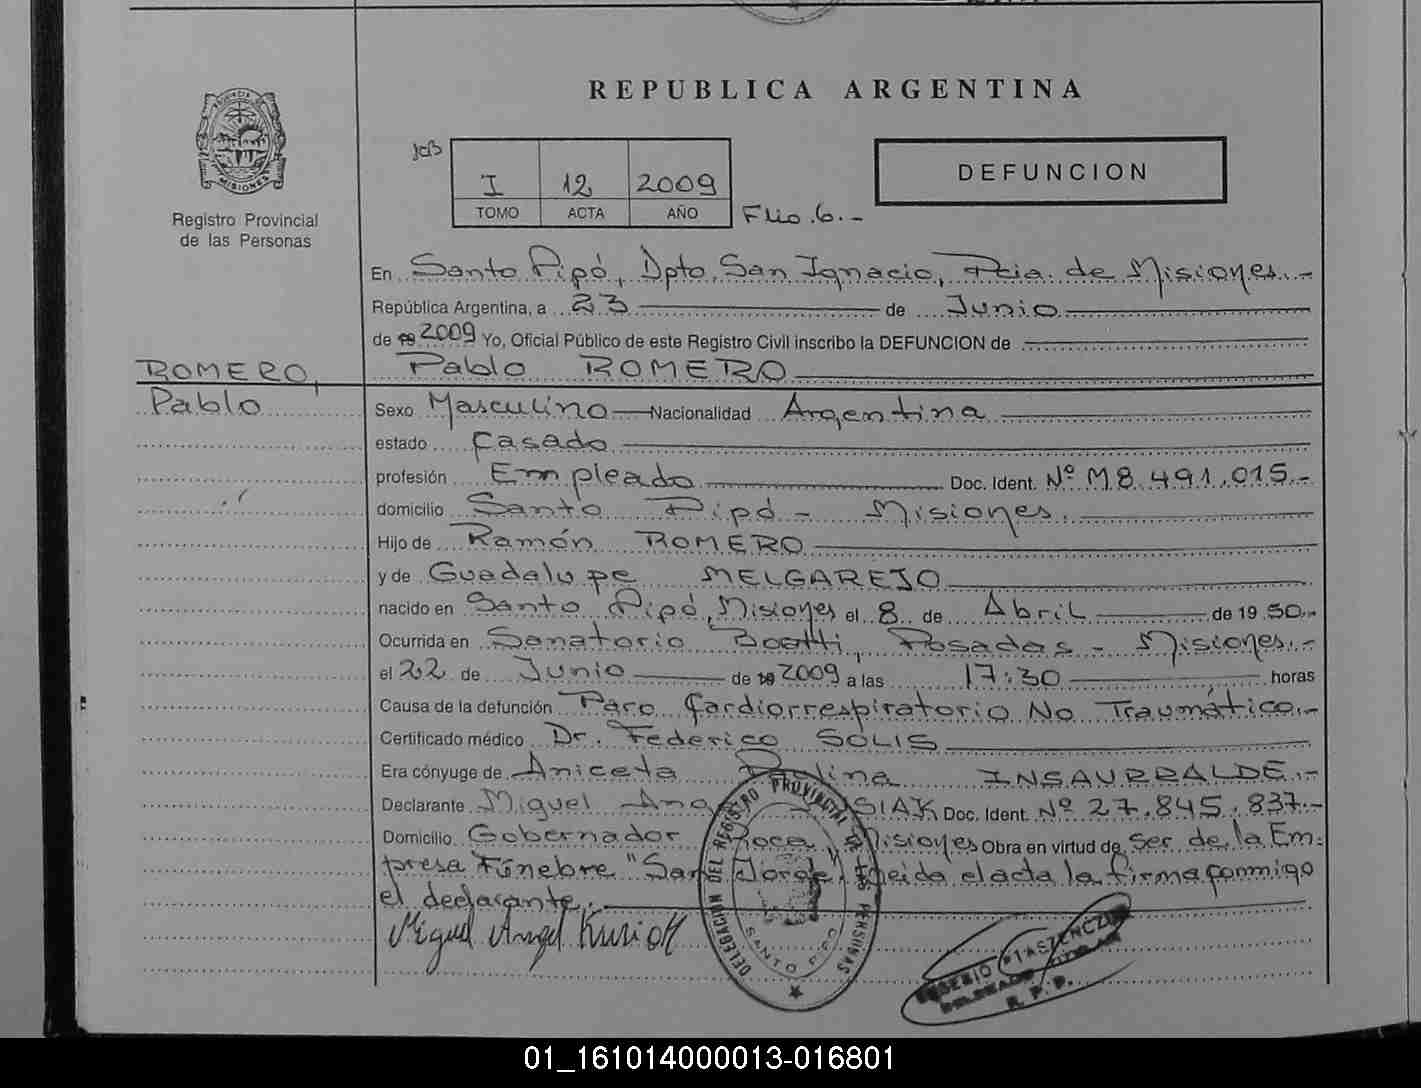 REPUBLICA ARGENTINA
PROVINCIA DE
MISIONES
Registro Provincial
de las Personas
JCB
I 12 2009
TOMO ACTA AÑO
Flio. 6.-
DEFUNCION
En Santo Pipó, Dpto. San Ignacio, Pcia. de Misiones.-
República Argentina, a 23 de Junio
de 19 2009 Yo, Oficial Público de este Registro Civil inscribo la DEFUNCION de
ROMERO,
Pablo
Pablo ROMERO
Sexo Masculino Nacionalidad Argentina
estado Casado
profesión Empleado Doc. Ident. Nº M8.491.015.-
domicilio Santo Pipó - Misiones.
Hijo de Ramón ROMERO
y de Guadalupe MELGAREJO
nacido en Santo Pipó, Misiones el 8 de Abril de 1950.-
Ocurrida en Sanatorio Boatti, Posadas - Misiones.-
el 22 de Junio de 19 2009 a las 17:30 horas
Causa de la defunción Paro Cardiorrespiratorio No Traumático.-
Certificado médico Dr. Federico SOLIS
Era cónyuge de Aniceta Paulina INSAURRALDE.-
Declarante Miguel Ang SIAK Doc. Ident. Nº 27.845.837.-
Domicilio Gobernador Roca, Misiones Obra en virtud de ser de la Em-
presa Fúnebre "San Jorge", leida el acta la firma conmigo
el declarante.
Miguel Angel
DELEGACION DEL REGISTRO PROVINCIAL DE LAS PERSONAS
SANTO PIPO
EUSEBIO PIASTENCZUK
DELEGADO TITULAR
R. P. P.
01_161014000013-016801